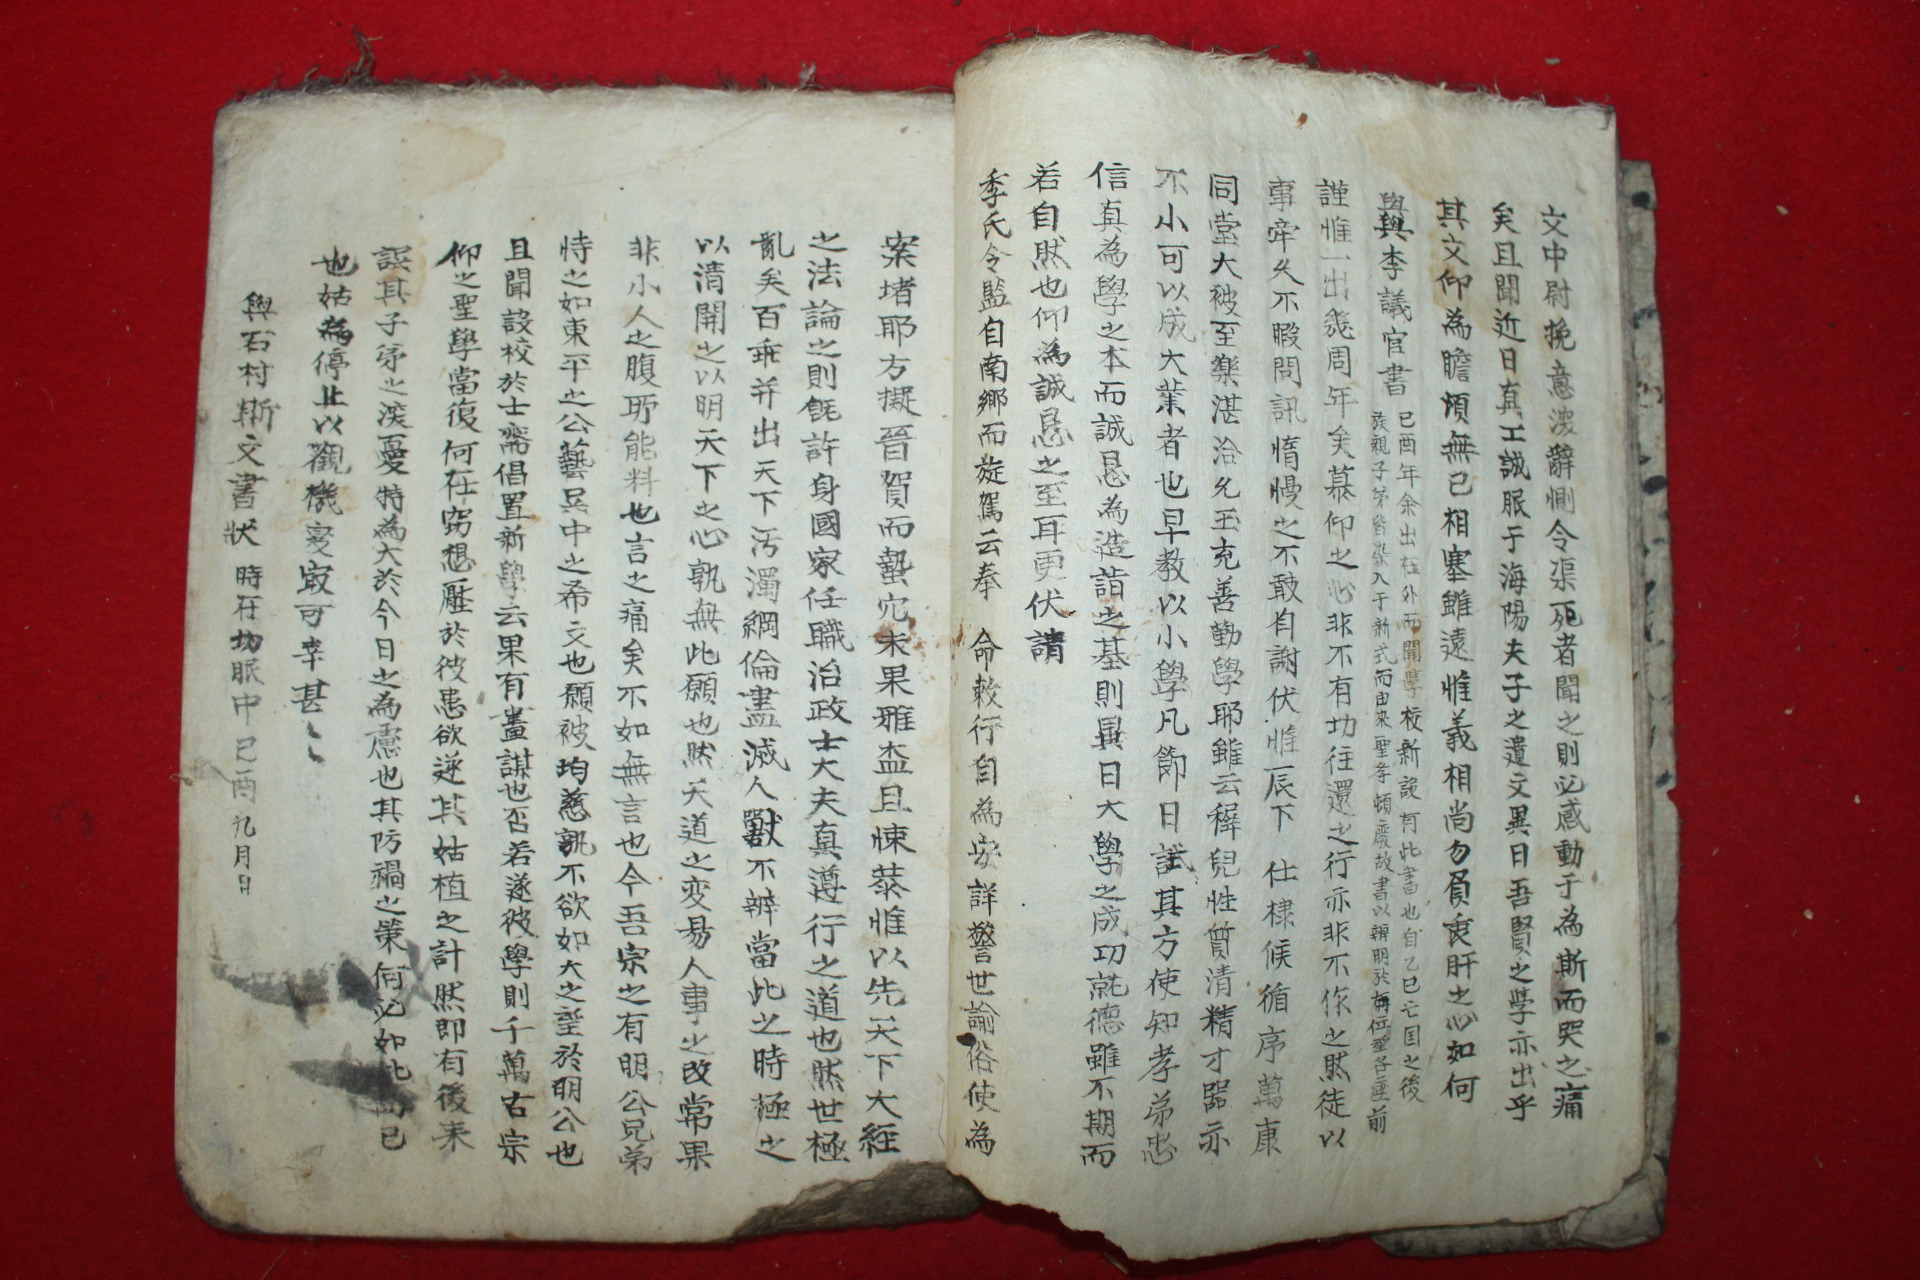 文中尉挽意波辭惻令渠死者聞之則必感動于為斯而哭之痛
矣且聞近日真工誠眠于海陽夫子之遺文異日吾賢之學亦出乎
其文仰為瞻煩無已相塞雖遠惟義相尚勿負衷肝之心如何
與李議官書
己酉年余出在外而開學校新設有此書也自乙巳亡国之後
族親子弟皆染入于新式而由來聖孝頓廢故書以辨明於每位
謹惟一出幾周年矣慕仰之心非不有切往還之行亦非不作之然徒以
事牽久不暇問訊惰慢之不敢自謝伏惟辰下 仕棣候循序萬康
同堂大被至樂湛洽允玉充善勤學耶雖云穉兒性質清精才器亦
不小可以成大業者也早教以小學凡節日試其方使知孝弟忠
信真為學之本而誠恳為造詣之基則異日大學之成功就德雖不期而
若自然也仰為誠恳之至耳更伏請
季氏令監自南鄉而旋駕云奉 命敕行自為安詳警世諭俗使為
案堵耶方擬晉賀而蟄穴未果雅盃且悚恭惟以先天下大経
之法論之則旣許身國家任職治政士大夫真遵行之道也然世極
亂矣百乖并出天下汚濁綱倫盡滅人獸不辨當此之時極之
以清開之以明天下之心孰無此願也然天道之変易人事之改常果
非小人之腹所能料也言之痛矣不如無言也今吾宗之有明公兄弟
恃之如東平之公藝吴中之希文也願被均慈孰不欲如大之望於明公也
且聞設校於士齋倡置新學云果有畫謀也否若遂彼學則千萬古宗
仰之聖學當復何在窃想雁於彼患欲遂其姑植之計然即有後来
誤其子弟之深憂特為大於今日之為慮也其防禍之策何必如此而已
也姑為停止以觀機变㝡可幸甚〻
與石村斯文書状 時在功服中己酉九月日